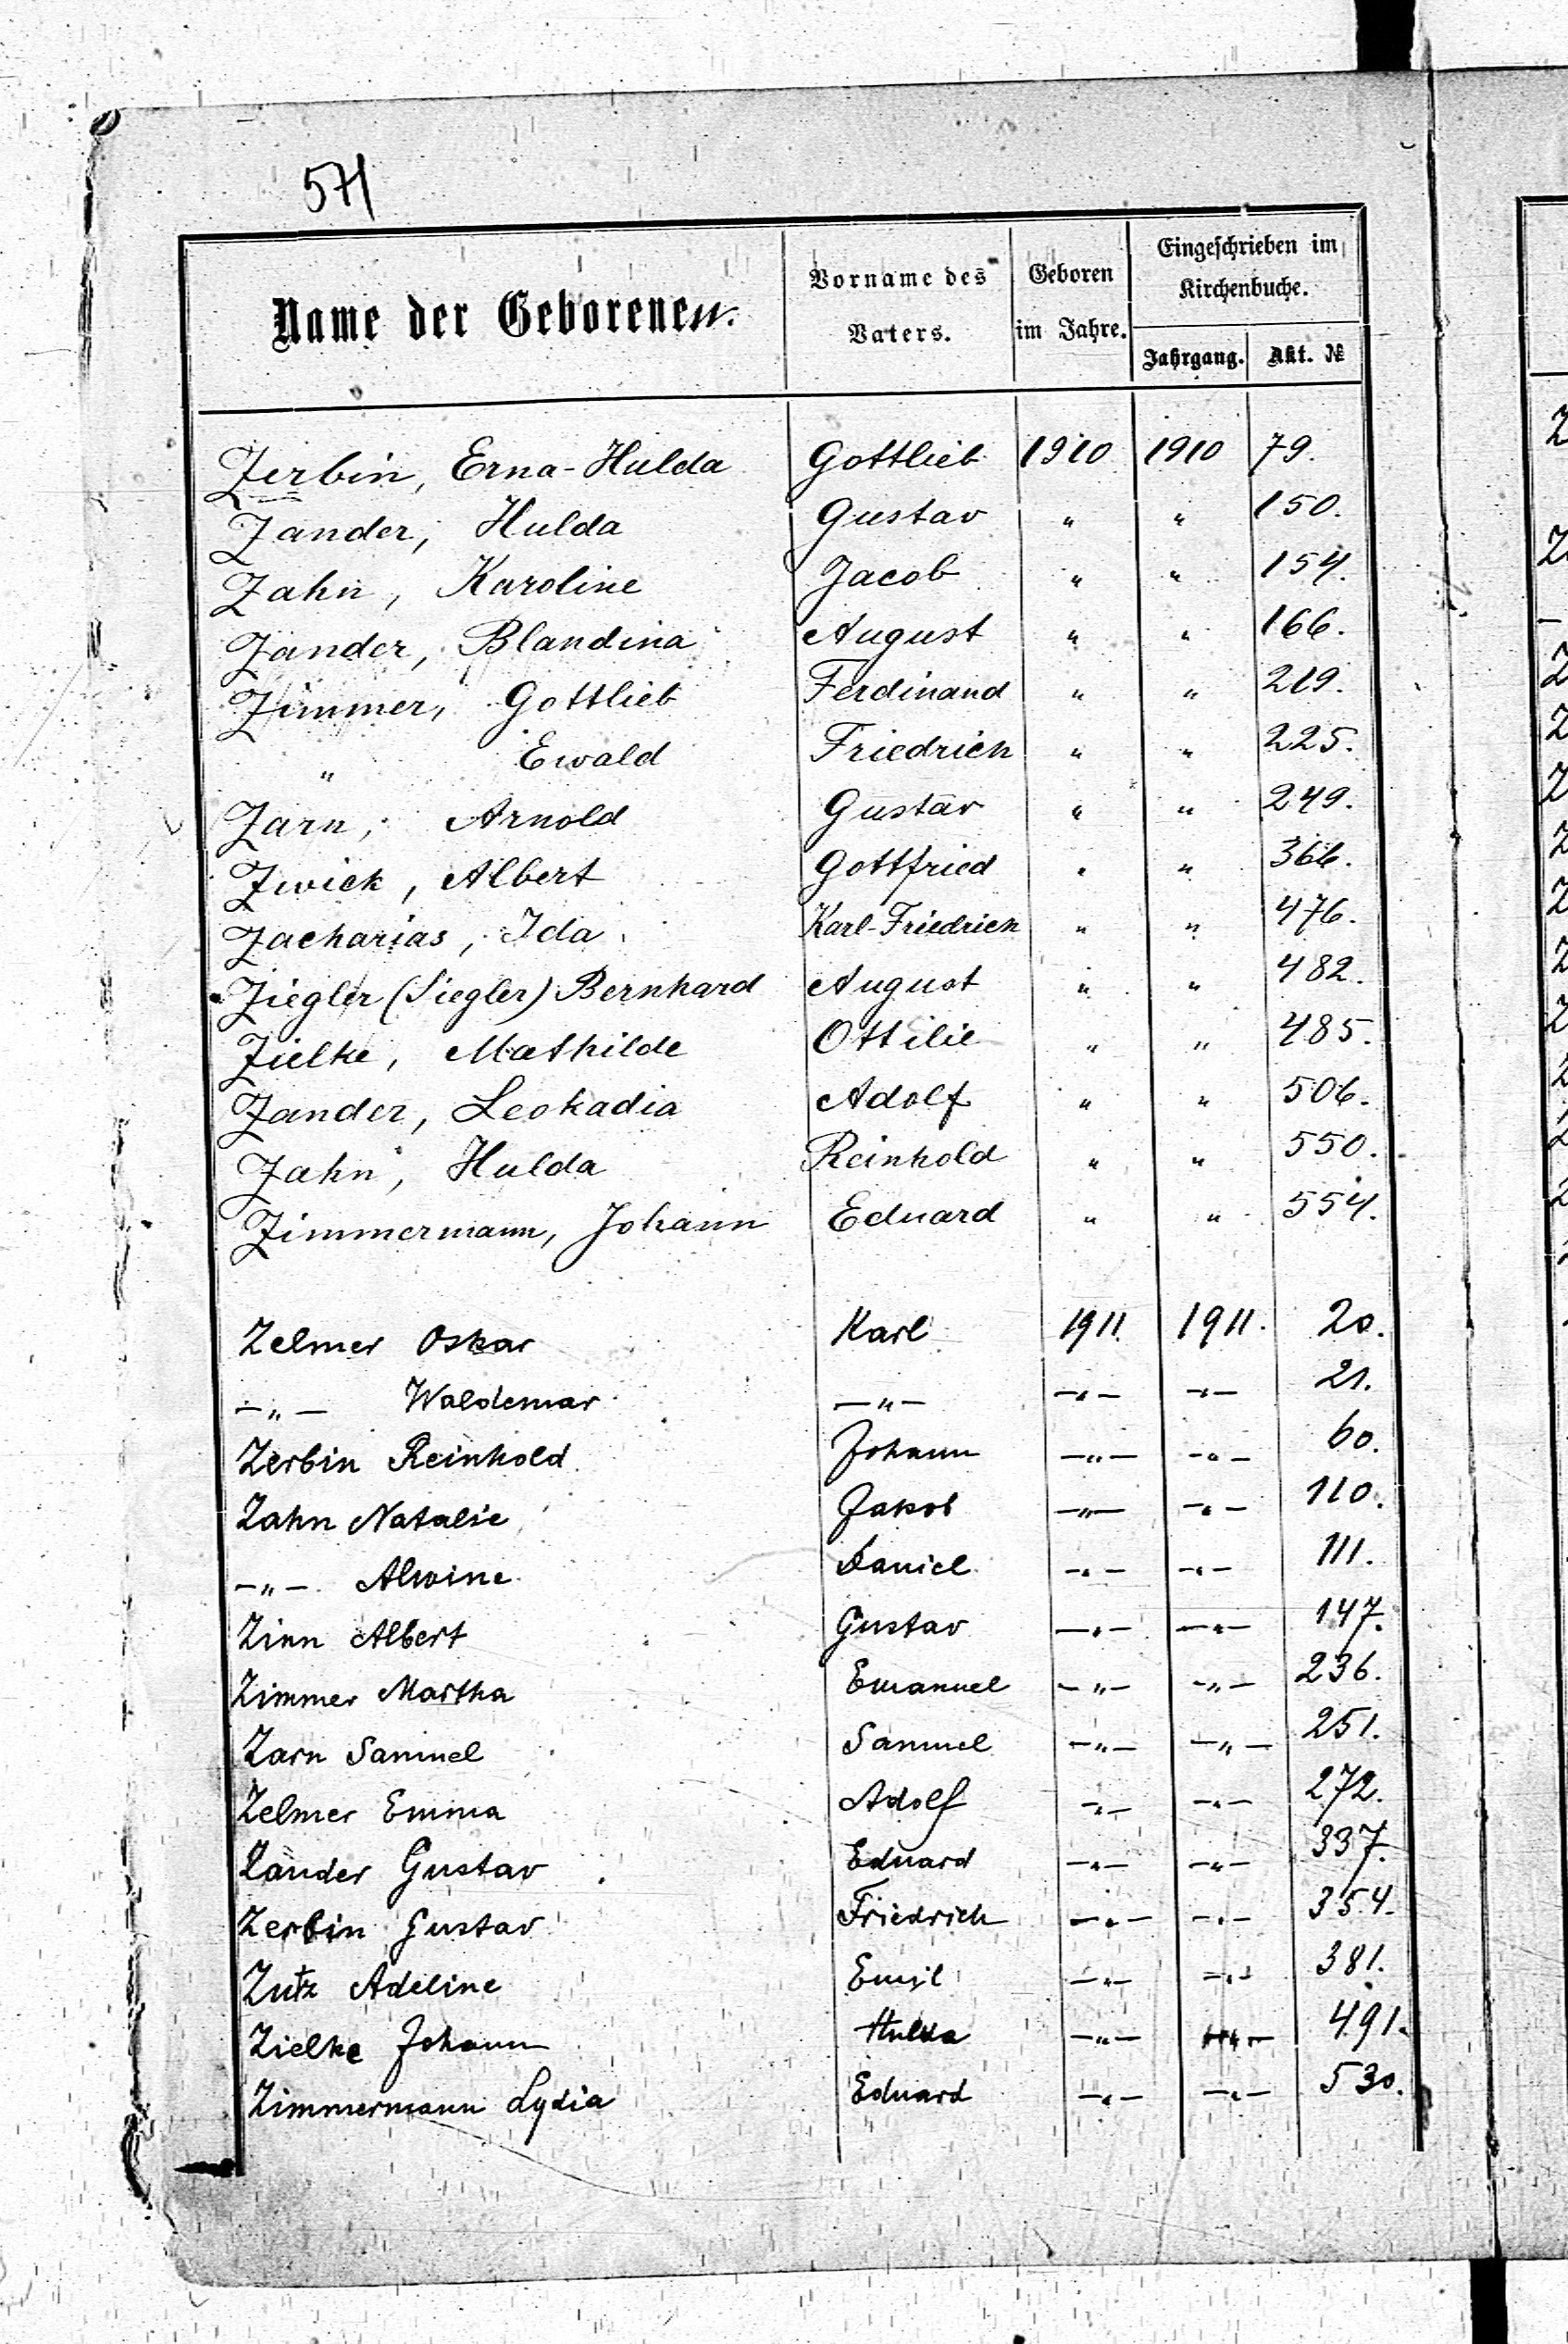 571
Name der Geborenen. Vorname des Vaters. Geboren im Jahre. Eingeschrieben im Kirchenbuche.
Jahrgang. Akt. №
Zerbin, Erna-Hulda Gottlieb 1910 1910 79.
Zander, Hulda Gustav " " 150.
Zahn, Karoline Jacob " " 154.
Zander, Blandina August " " 166.
Zimmer, Gottlieb Ferdinand " " 219.
" Ewald Friedrich " " 225.
Zarn, Arnold Gustav " " 249.
Zwick, Albert Gottfried " " 366.
Zacharias, Ida Karl-Friedrich " " 476.
Ziegler (Siegler) Bernhard August " " 482.
Zielke, Mathilde Ottilie " " 485.
Zander, Leokadia Adolf " " 506.
Zahn, Hulda Reinhold " " 550.
Zimmermann, Johann Eduard " " 554.
Zelmer Oskar Karl 1911. 1911. 20.
—"— Waldemar —"— —"— —"— 21.
Zerbin Reinhold Johann —"— —"— 60.
Zahn Natalie Jakob —"— —"— 110.
—"— Alwine Daniel —"— —"— 111.
Zinn Albert Gustav —"— —"— 147.
Zimmer Martha Emanuel —"— —"— 236.
Zarn Samuel Samuel —"— —"— 251.
Zelmer Emma Adolf —"— —"— 272.
Zander Gustav Eduard —"— —"— 337.
Zerbin Gustav Friedrich —"— —"— 354.
Zutz Adeline Emil —"— —"— 381.
Zielke Johann Hulda —"— —"— 491.
Zimmermann Lydia Eduard —"— —"— 530.